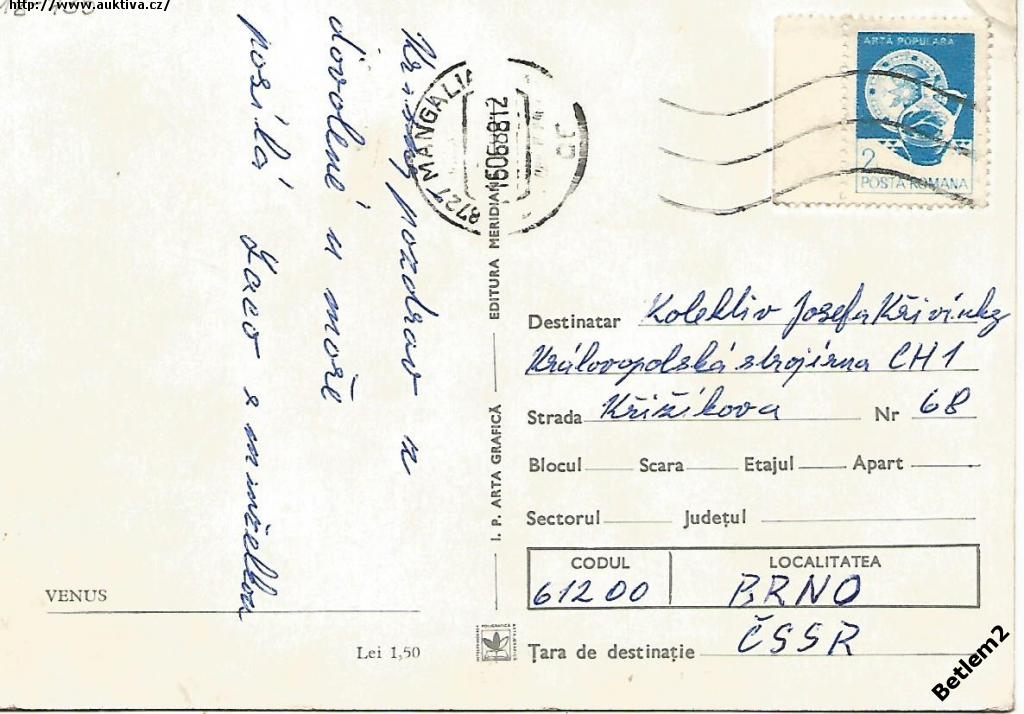 http://www.auktiva.cz/
Krásný pozdrav z
dovolené u moře
posílá Laco s manželkou
ARTA POPULARA
2
POSTA ROMANA
8727 MANGALIA
15068812
EDITURA MERIDIANE
I. P. ARTA GRAFICĂ
Destinatar Kolektiv Josefa Křivínky
Královopolská strojírna CH1
Strada Křižíkova Nr 68
Blocul Scara Etajul Apart
Sectorul Județul
CODUL LOCALITATEA
61200 BRNO
Țara de destinație ČSSR
VENUS
Lei 1,50
Betlem2